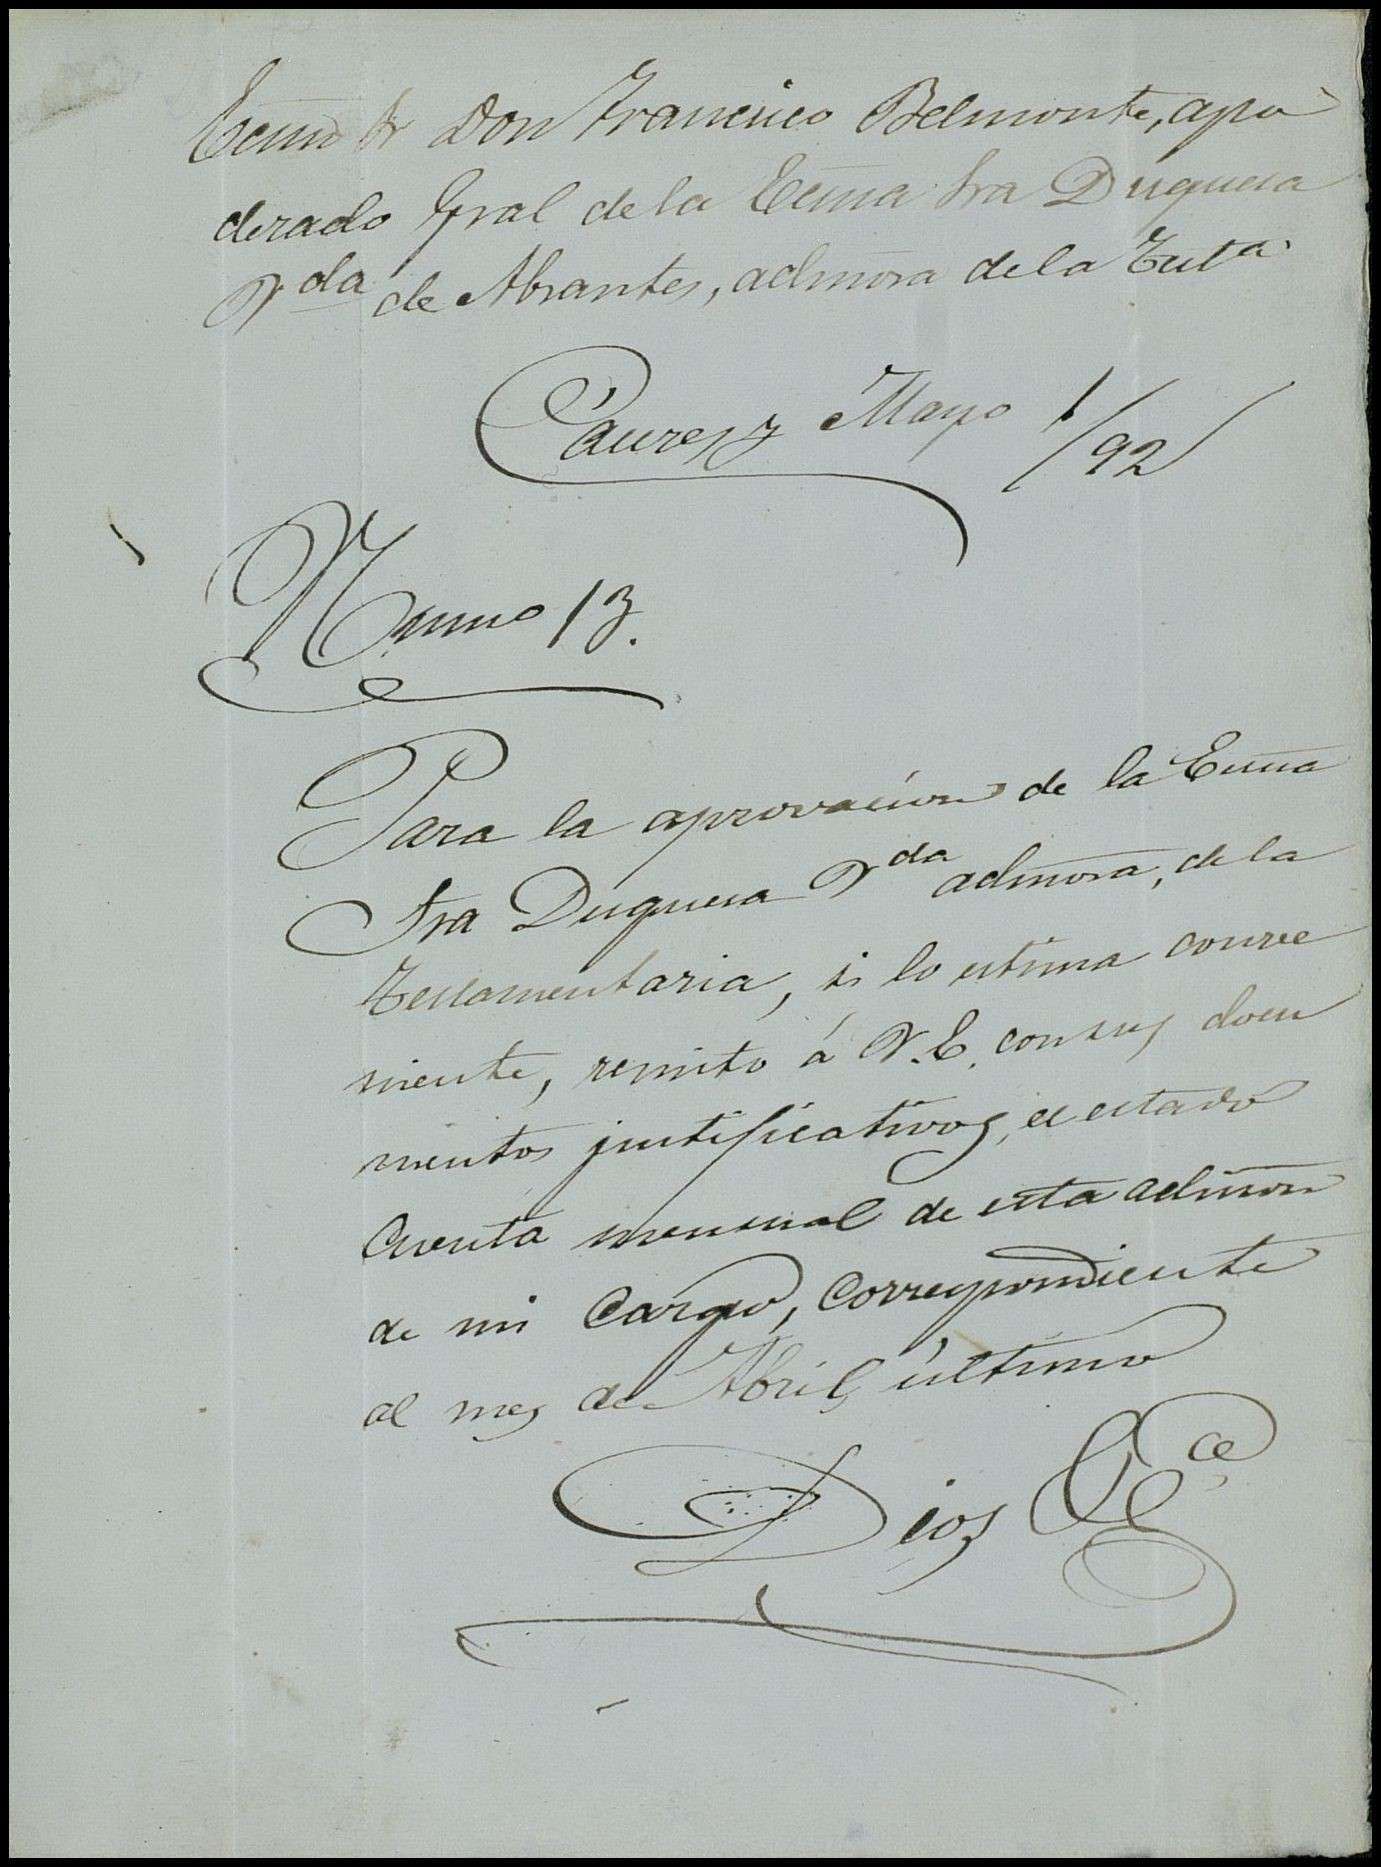 Ecmo Sr Don Francisco Belmonte, apo
derado Gral de la Ecma Sra Duquesa
Vda de Abrantes, admora de la Testa
Cáceres y Mayo 1/92
Numo 13.
Para la aprovación de la Ecma
Sra Duquesa Vda admora, de la
Testamentaria, si lo estima conve
niente, remito á V.E. con sus docu
mentos justificativos, el estado
cuenta mensual de esta admon
de mi cargo, correspondiente
al mes de Abril último
Dios &ce